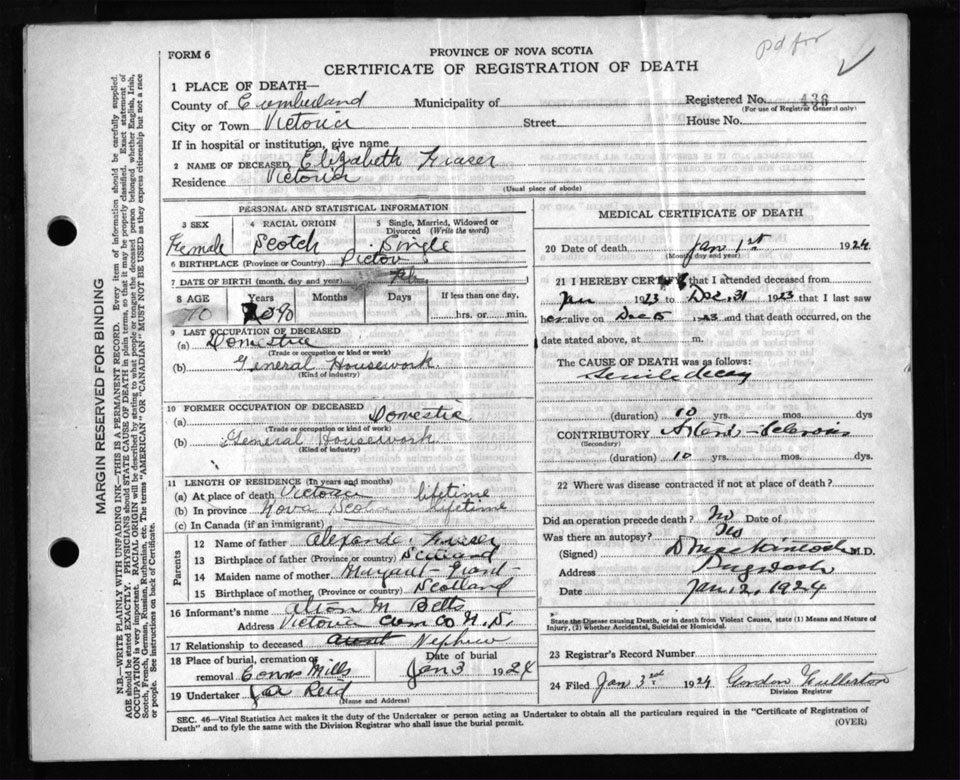 pd for
FORM 6
PROVINCE OF NOVA SCOTIA
CERTIFICATE OF REGISTRATION OF DEATH
MARGIN RESERVED FOR BINDING
N.B.—WRITE PLAINLY WITH UNFADING INK—THIS IS A PERMANENT RECORD. Every item of information should be carefully supplied.
AGE should be stated EXACTLY. PHYSICIANS should STATE CAUSE OF DEATH in plain terms, so that it may be properly classified. Exact statement of
OCCUPATION is very important. RACIAL ORIGIN will be described by stating to what people or tongue the deceased person belonged whether English, Irish,
Scotch, French, German, Russian, Ruthenian, etc. The terms "AMERICAN" OR "CANADIAN" MUST NOT BE USED as they express citizenship but not a race
or people. See instructions on back of Certificate.
1 PLACE OF DEATH—
County of Cumberland Municipality of Registered No. 436
(For use of Registrar General only)
City or Town Victoria Street House No.
If in hospital or institution, give name
2 NAME OF DECEASED Elizabeth Fraser
Residence Victoria
(Usual place of abode)
PERSONAL AND STATISTICAL INFORMATION
3 SEX 4 RACIAL ORIGIN 5 Single, Married, Widowed or Divorced (Write the word)
Female Scotch Single
6 BIRTHPLACE (Province or Country) Pictou
7 DATE OF BIRTH (month, day and year)
8 AGE Years Months Days If less than one day,
hrs. or min.
9 LAST OCCUPATION OF DECEASED
(a) Domestic
(Trade or occupation or kind or work)
(b) General Housework
(Kind of industry)
10 FORMER OCCUPATION OF DECEASED
(a) Domestic
(Trade or occupation or kind of work)
(b) General Housework
(Kind of industry)
11 LENGTH OF RESIDENCE (In years and months)
(a) At place of death Victoria lifetime
(b) In province Nova Scotia lifetime
(c) In Canada (if an immigrant)
Parents
12 Name of father Alexander Fraser
13 Birthplace of father (Province or country) Scotland
14 Maiden name of mother Margaret Grant
15 Birthplace of mother (Province or country) Scotland
16 Informant's name M Betts
Address Victoria Cum Co N.S.
17 Relationship to deceased Aunt Nephew
18 Place of burial, cremation or removal Conns Mills Date of burial Jan 3 1924
19 Undertaker Jas Reid
(Name and Address)
MEDICAL CERTIFICATE OF DEATH
20 Date of death Jan 1st 1924
(Month, day and year)
21 I HEREBY CERTIFY that I attended deceased from
Jan 1923 to Dec. 31 1923 that I last saw
her alive on Dec 1923 and that death occurred, on the
date stated above, at m.
The CAUSE OF DEATH was as follows:
Senile decay
(duration) 10 yrs. mos. dys
CONTRIBUTORY Arterio-Sclerosis
(Secondary)
(duration) 10 yrs. mos. dys.
22 Where was disease contracted if not at place of death?
Did an operation precede death? No Date of
Was there an autopsy? No
(Signed) D Mackintosh M.D.
Address Pugwash
Date Jan 2, 1924
State the Disease causing Death, or in death from Violent Causes, state (1) Means and Nature of
Injury, (2) whether Accidental, Suicidal or Homicidal.
23 Registrar's Record Number
24 Filed Jan 3rd 1924 Gordon Fullerton
Division Registrar
SEC. 46—Vital Statistics Act makes it the duty of the Undertaker or person acting as Undertaker to obtain all the particulars required in the "Certificate of Registration of
Death" and to fyle the same with the Division Registrar who shall issue the burial permit.
(OVER)